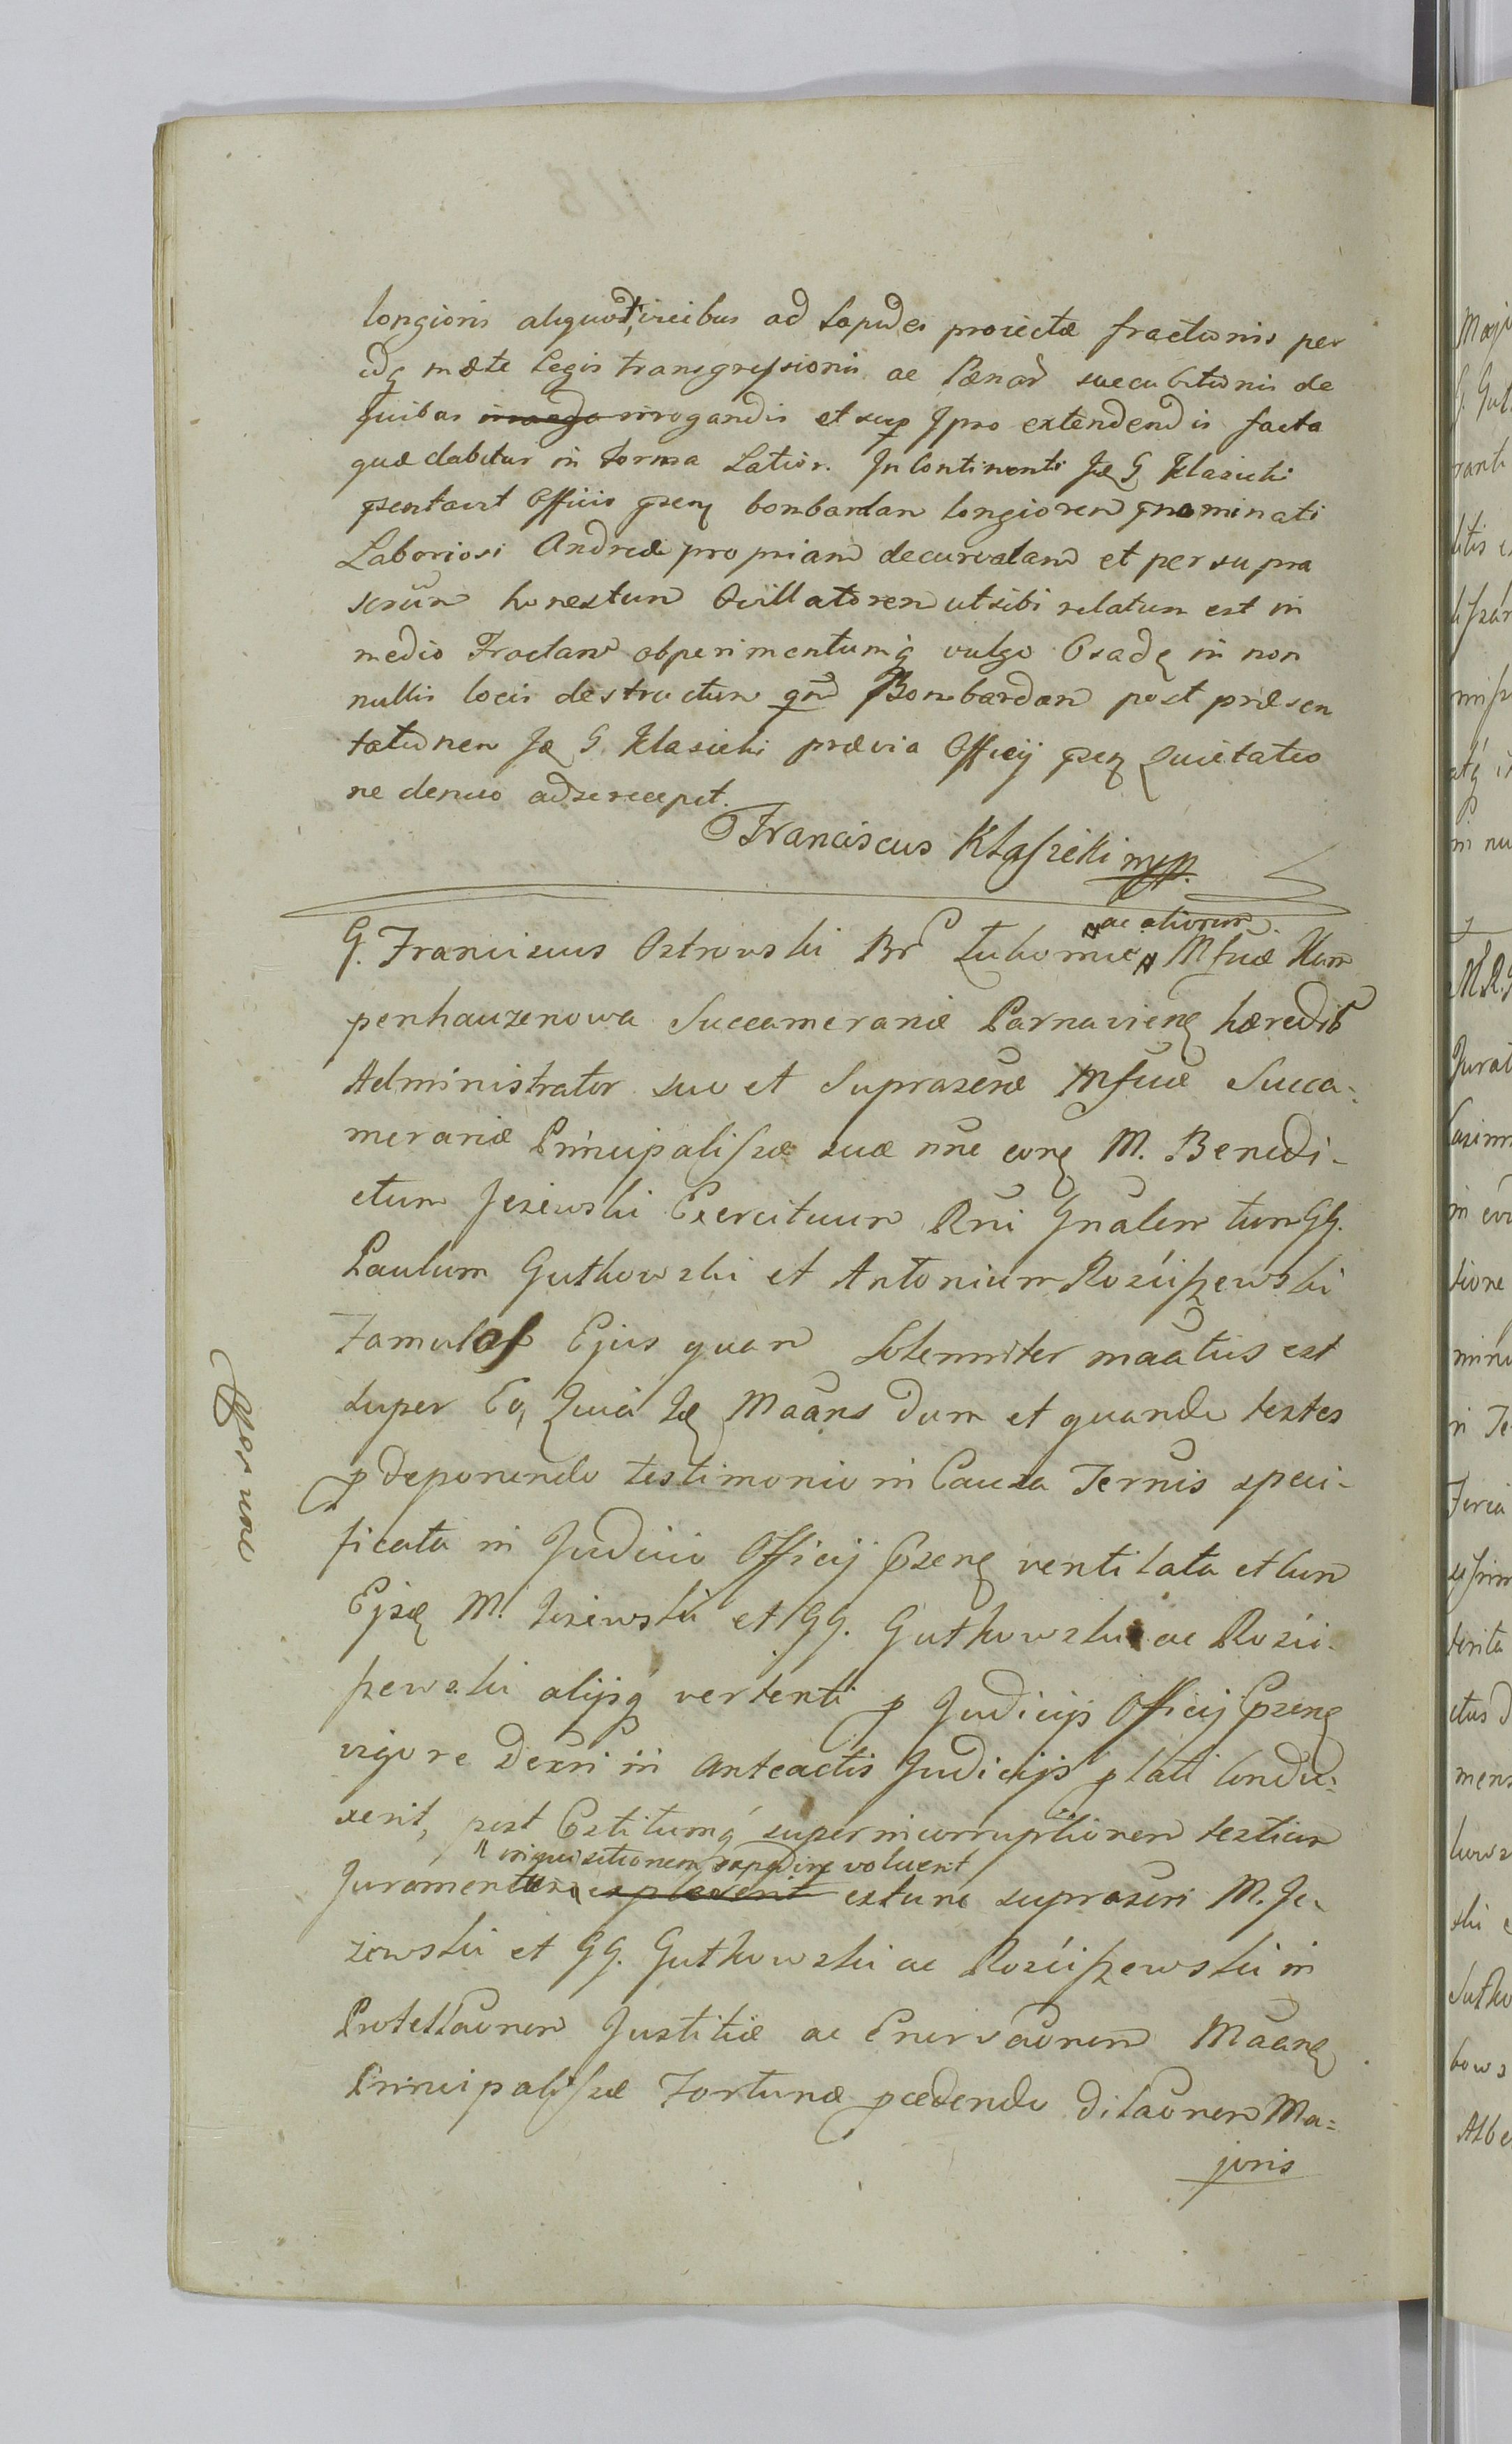 longioris aliquot vicibus ad Lapides proiectæ fractionis per
idq mæte Legis transgressionis ac Pænar succubitionis de
quibus irrogandis et sup Ipso extendendis facta
quæ dabitur in Forma Latior. In Continenti Jdę G Klasicki
psentavit Officio psenę bombardan longiorem pnominati
Laboriosi Andreæ propriam decurvatam et per supra
scrun honestum Ovillatorem ut sibi relatum est in
medio Fractam obperimentumq vulgo Osadę in non
nullis locis destructum qm Bombardam post præsen
tationem Jdę G. Klasicki prævia Officij psenę Quietatio
ne denuo ad se recepit.
Franciscus Klasicki mpp.
G. Franciscus Ostrowski Br Lukomie ac aliorum Mfcæ Kam
penhauzenowa Succamerariæ Parnavienę hæredit
Administrator suo et Suprascræ Mfcæ Succa-
merariæ Principalissæ suæ nne corę M. Benedi-
ctum Jezewski Exercituum Rni Gnalem tum GG.
Paulum Gutkowski et Antonium Rosciszewski
Famulos Ejus quam Solemniter maatus est
super Eo, Quia Jdę Maans dum et quando testes
p deponendo testimonio in Causa Ternis speci-
ficata in Judicio Officij Pzenę ventilata et cum
Ejsdę M. Jezewski et GG. Gutkowski ac Rosci-
szewski alijsq vertenti p Judicijs Officij Pzenę
vigore Decri in Anteactis Judicijs plati condu-
xerit, post Extitumq super incorruptionem testium
inquisitionem expedire voluerit
Juramentum expleverit extunc suprascri M. Je-
zewski et GG. Gutkowski ac Rosciszewski in
Protellaonem Justitiæ ac Enervaonem Maanę
Principalissæ Fortunæ pcedendo dilaonem Ma-
joris